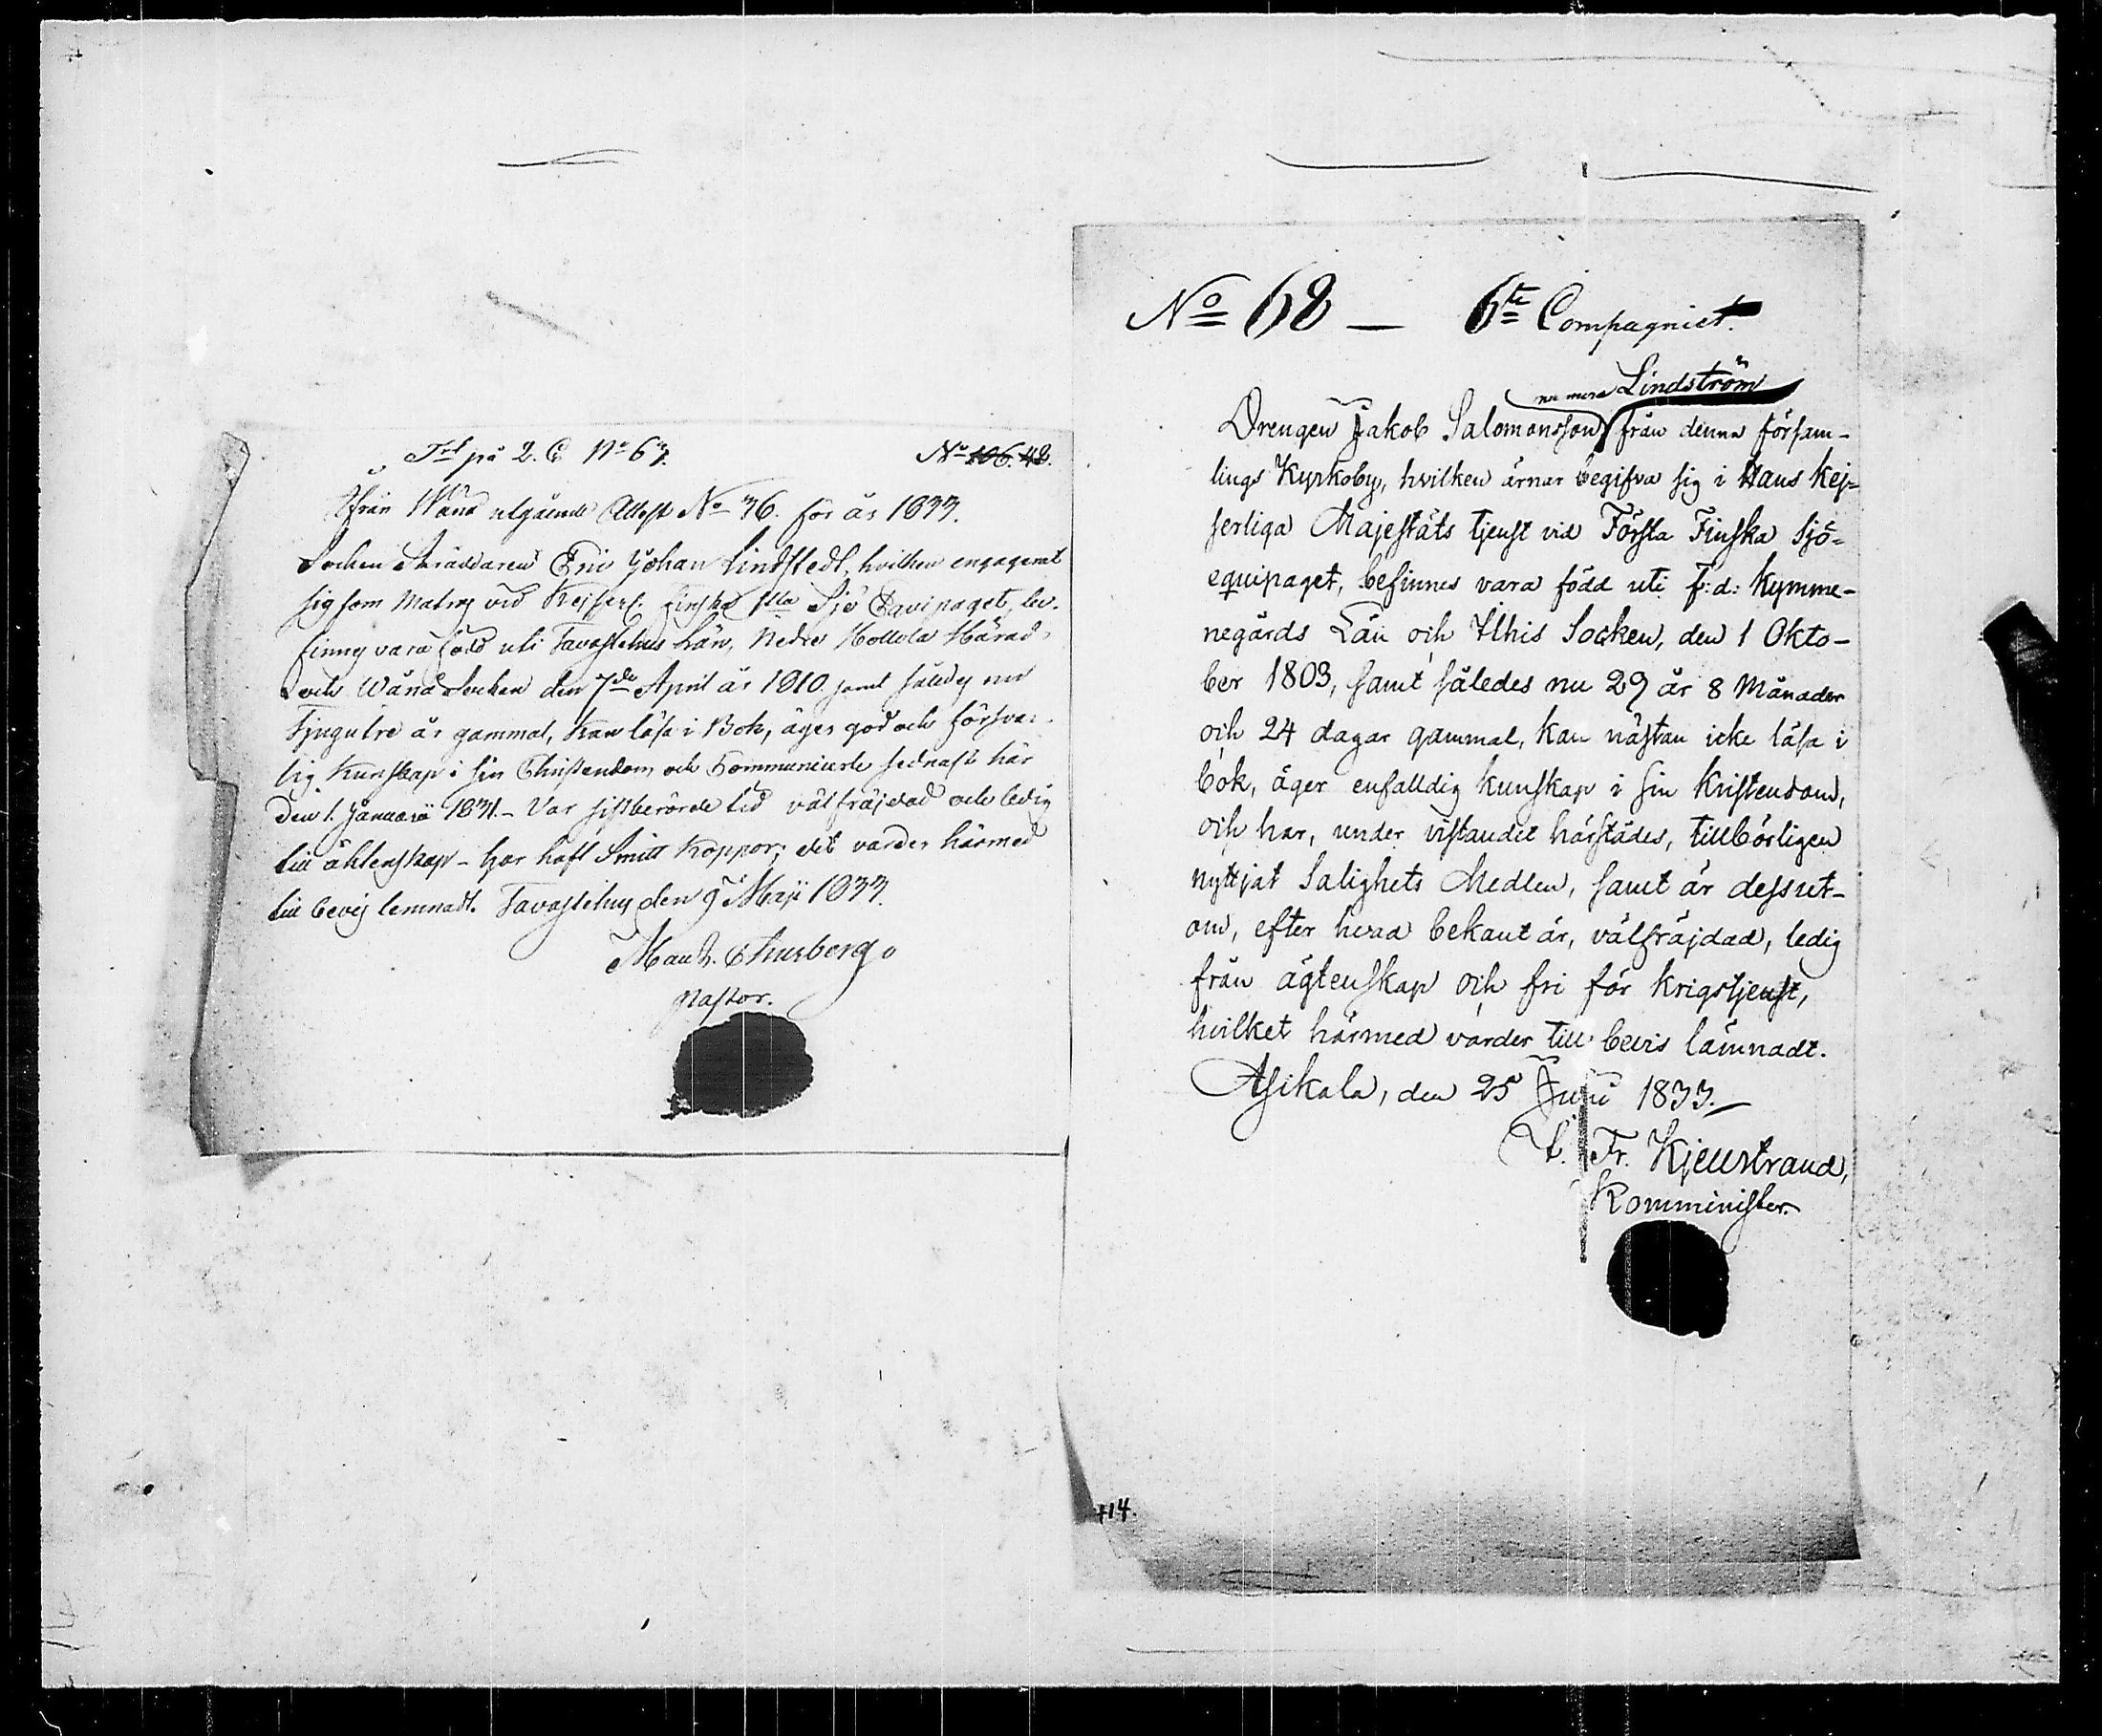 på 2. C. No 67. No 106. 48.
Ifrån Wånå utgående Attest No 36. för år 1833.
Sochen Skräddaren Eric Johan Lindstedt, hvilken engagerat
sig som Matros vid Kejserl. Finska 1sta Sjö Equipaget, be-
finnes vara född uti Tavastehus Län, Nedre Hollola Härad
och Wånå Sochen den 7de April år 1810 samt således nu
Tjugutre år gammal, kan läsa i Bok, äger god och försvar-
lig kunskap i sin Christendom och Communicerte sednast här
den 1. Januarii 1831. - Var sistberörde tid välfräjdad och ledig
till äktenskap - har haft Smitt koppor; det varder härmed
till bevis lemnadt. Tavastehus den 9 Maji 1833.
Thurberg
Pastor.
No 68 — 6te Compagniet.
nu mera Lindström
Drengen Jakob Salomonsson från denna församlings-
lings Kyrkoby, hvilken ärnar begifva sig i Hans Kej-
serliga Majestäts tjenst vid Första Finska Sjö-
equipaget, befinnes vara född uti f: d: Kymme-
negårds Län och Ithis Socken, den 1 Okto-
ber 1803, samt således nu 29 år 8 Månader
och 24 dagar gammal, kan nästan icke läsa i
bok, äger enfalldig kunskap i sin Kristendom,
och har, under vistandet härstädes, tillbörligen
nyttjat Salighets Medlen, samt är dessut-
om, efter hvad bekant är, välfräjdad, ledig
från ägtenskap och fri för krigstjenst,
hvilket härmed varder till bevis lämnadt.
Asikala, den 25 Juni 1833. —
Fr. Kjellstrand,
Komminister.
414.